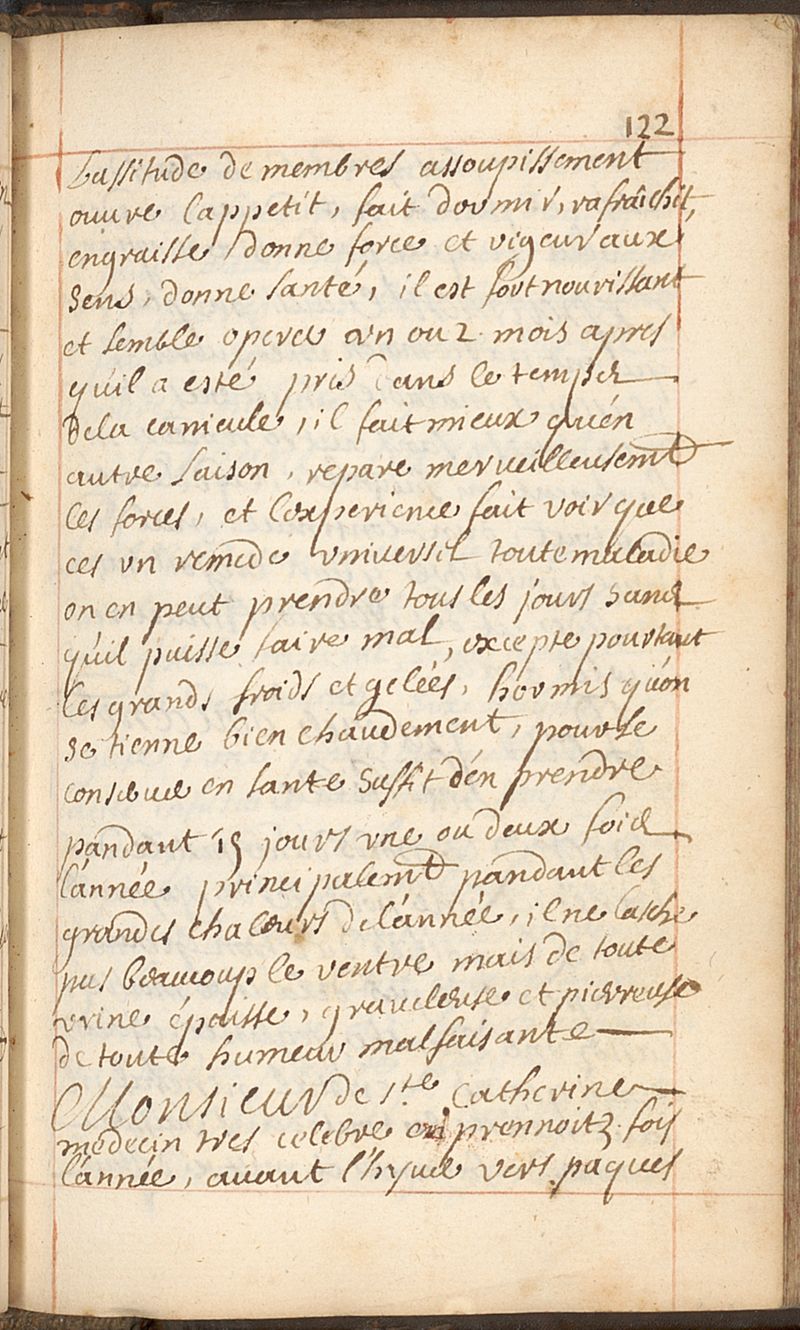 122
Lassitude de membres assoupissement
ouvre l'appetit, fait dormir, rafraîchit,
engraisse, donne force et vigeur aux
sens, donne santé, il est fort nourissant
et semble operer un ou 2 mois apres
qu'il a esté pris dans le temps
de la canicule, il fait mieux qu'en
autre saison, repare merveilleusemt
les forces, et l'experience fait voir que
ces un remede universel toute maladie
on en peut prendre tous les jours sans
qu'il puisse faire mal, excepte pourtant
les grands froids et gelées, hormis qu'on
se tienne bien chaudement, pour se
conserver en sante suffit d'en prendre
pandant 15 jours une ou deux fois
l'année principalemt pandant les
grandes chaleurs de l'année, il ne lasche
pas beaucoup le ventre mais de toute
urine épaisse, graveleuse et pierreuse
de toute humeur malfaisante
Monsieur de Ste Catherine
medecin tres celebre en prennoit 3 fois
l'année, avant l'hyver vers paques